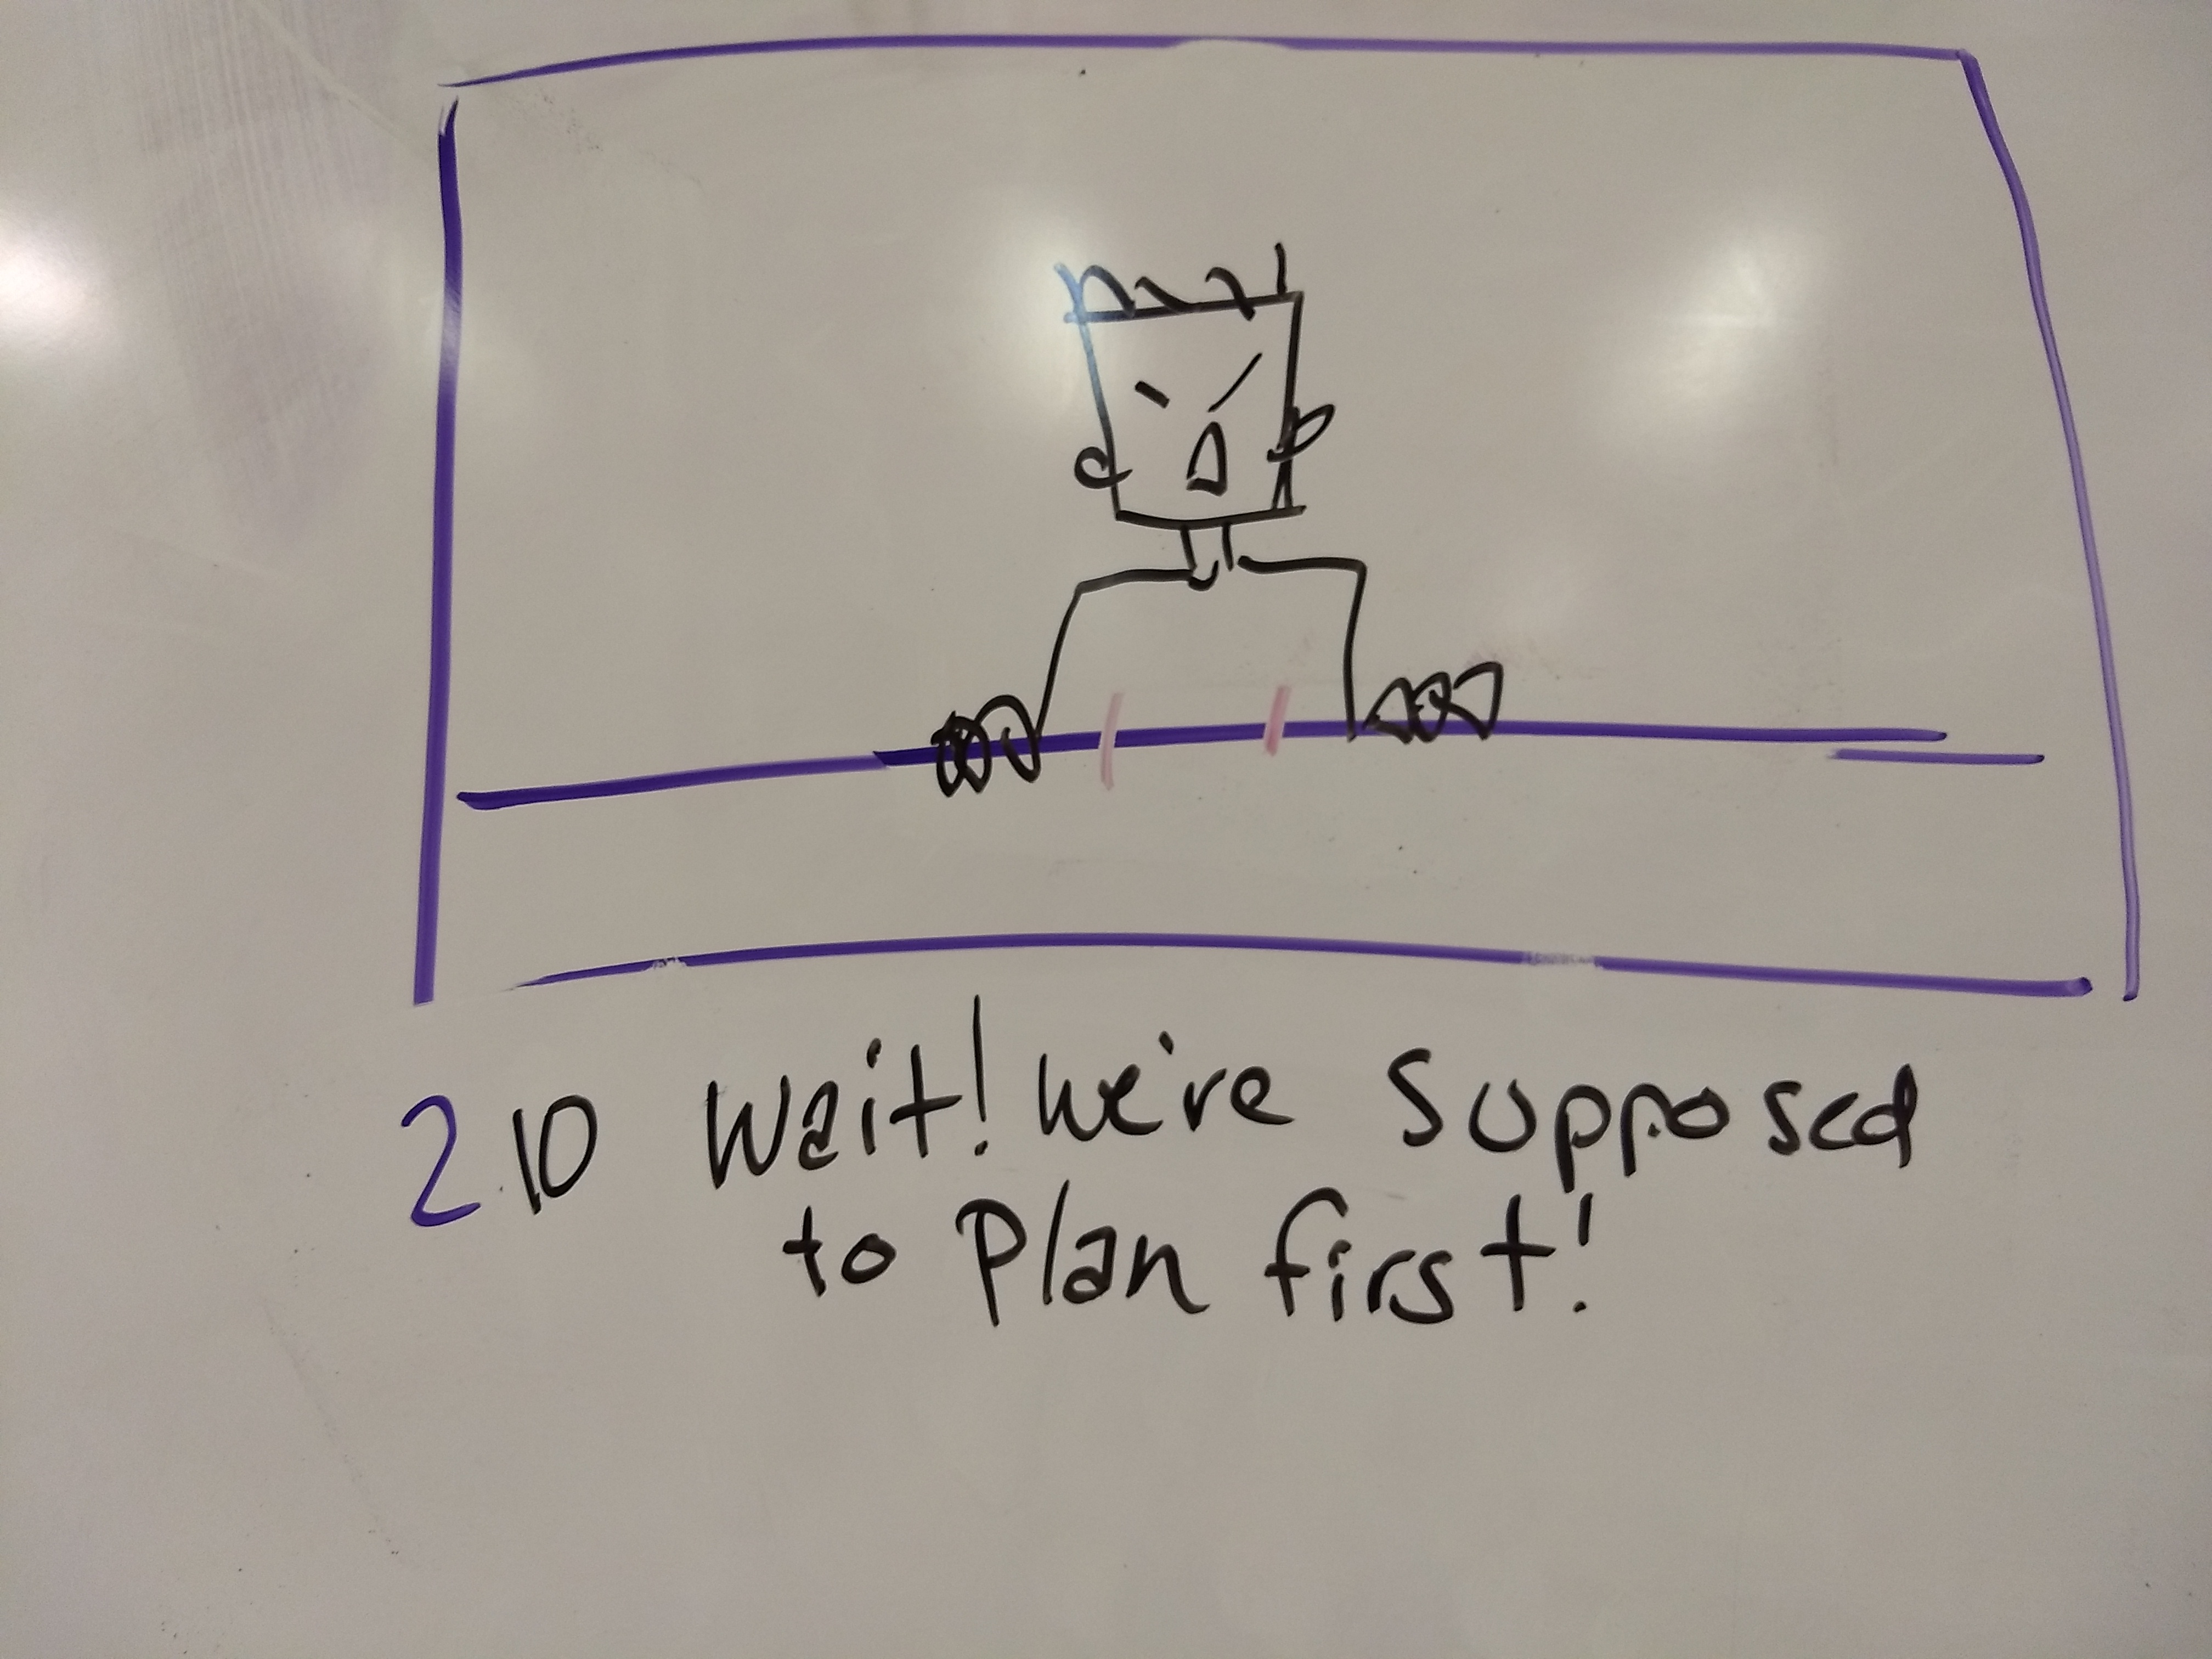 2.10 Wait! We're supposed
to Plan first!